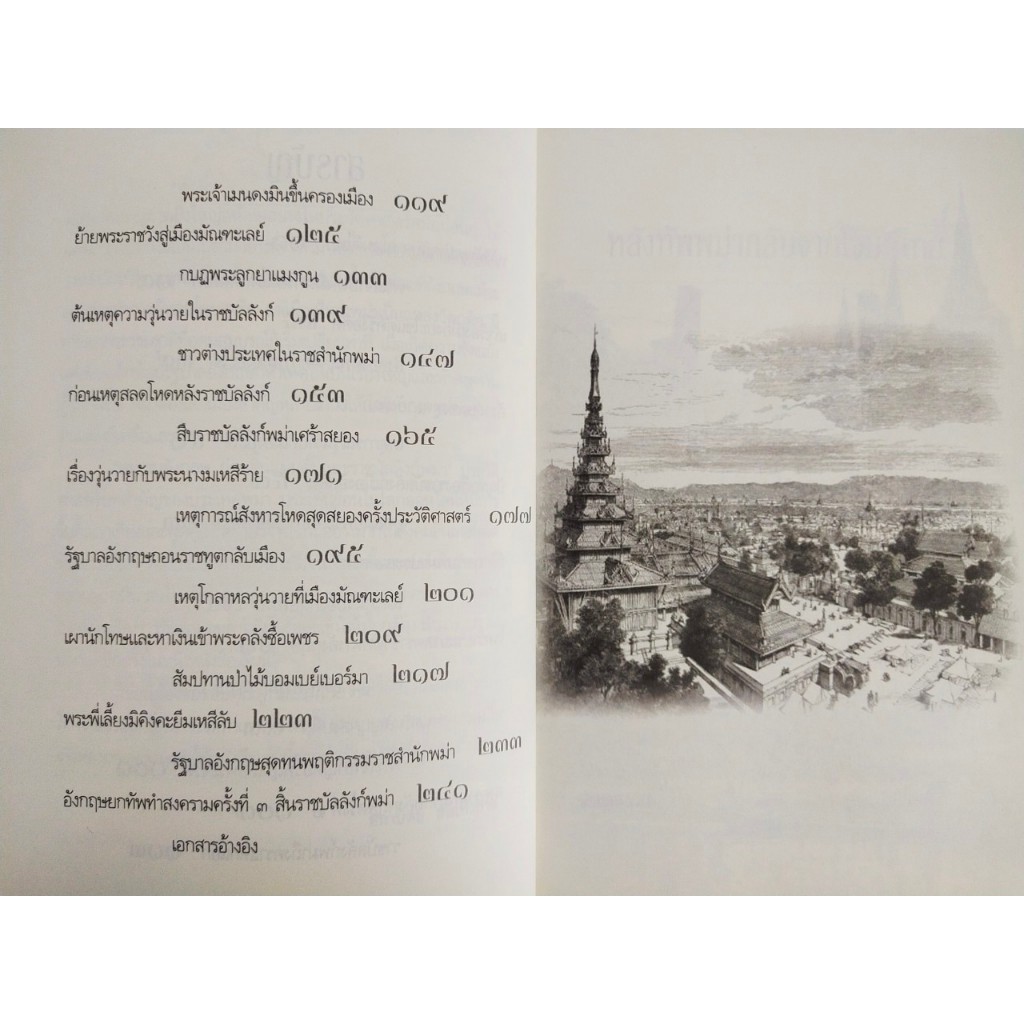 พระเจ้าเมนดงมินขึ้นครองเมือง ๑๑๙
ย้ายพระราชวังสู่เมืองมัณฑะเลย์ ๑๒๕
กบฏพระลูกยาแมงกูน ๑๓๓
ต้นเหตุความวุ่นวายในราชบัลลังก์ ๑๓๙
ชาวต่างประเทศในราชสำนักพม่า ๑๔๗
ก่อนเหตุสลดโหดหลังราชบัลลังก์ ๑๕๓
สืบราชบัลลังก์พม่าเศร้าสยอง ๑๖๕
เรื่องวุ่นวายกับพระนางมเหสีร้าย ๑๗๑
เหตุการณ์สังหารโหดสุดสยองครั้งประวัติศาสตร์ ๑๗๗
รัฐบาลอังกฤษถอนราชทูตกลับเมือง ๑๙๕
เหตุโกลาหลวุ่นวายที่เมืองมัณฑะเลย์ ๒๐๑
เผานักโทษและหาเงินเข้าพระคลังซื้อเพชร ๒๐๙
สัมปทานป่าไม้บอมเบย์เบอร์มา ๒๑๗
พระพี่เลี้ยงมิคิงคะยีมเหสีลับ ๒๒๓
รัฐบาลอังกฤษสุดทนพฤติกรรมราชสำนักพม่า ๒๓๓
อังกฤษยกทัพทำสงครามครั้งที่ ๓ สิ้นราชบัลลังก์พม่า ๒๔๑
เอกสารอ้างอิง